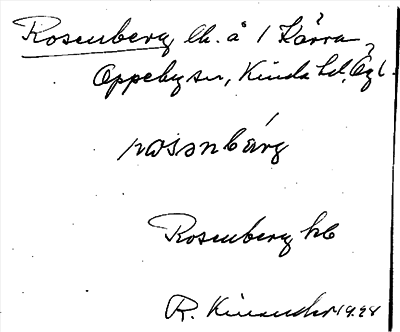 Rosenberg lh. å 1 Kärra,
Oppeby sn, Kinda hd, Ögl.
rosənbærg
Rosenberg hb
R. Kinander 1928